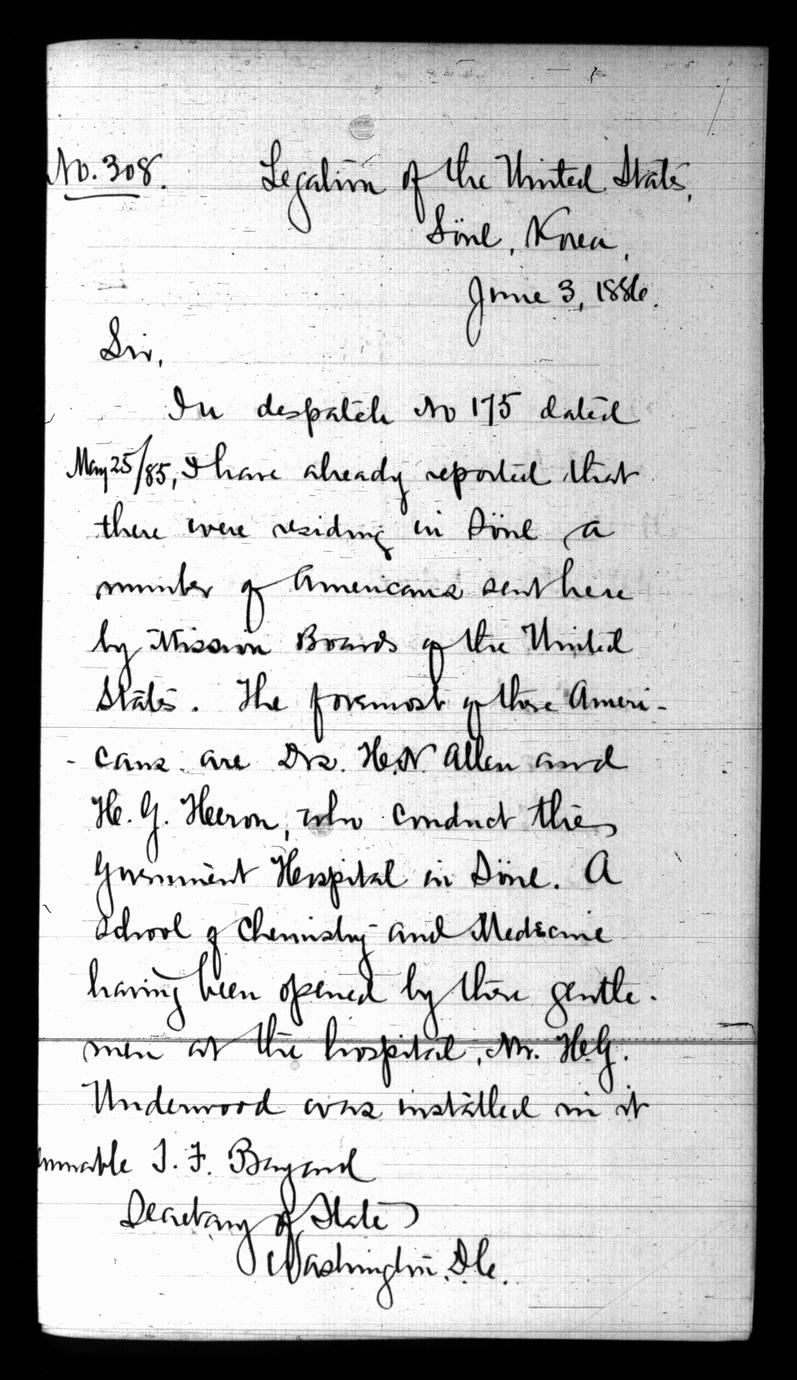 No. 308. Legation of the United States,
Söul, Korea,
June 3, 1886.
Sir,
In despatch No 175 dated
May 25/85, I have already reported that
there were residing in Söul a
number of Americans sent here
by Mission Boards of the United
States. The foremost of those Ameri-
- cans are Drs. H.N. Allen and
H. G. Heeron, who conduct the
Government Hospital in Söul. A
School of Chemistry and Medicine
having been opened by those gentle-
men at the hospital, Mr. H.G.
Underwood was installed in it
onorable T. F. Bayard
Secretary of State
Washington, D.C.